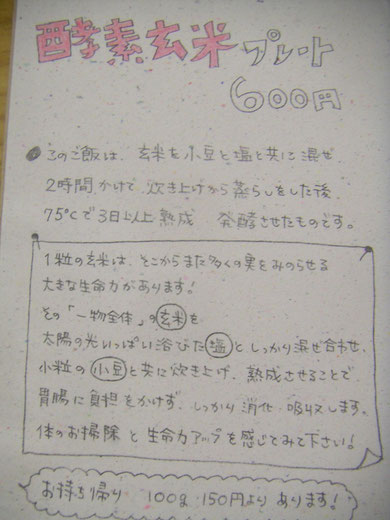 酵素玄米プレート
600円
●このご飯は、玄米を小豆と塩と共に混ぜ
2時間かけて炊き上げから蒸らしをした後
75℃で3日以上熟成 発酵させたものです。
1粒の玄米は、そこからまた多くの実をみのらせる
大きな生命力があります!
その「一物全体」の玄米を
太陽の光いっぱい浴びた塩としっかり混ぜ合わせ、
小粒の小豆と共に炊き上げ、熟成させることで
胃腸に負担をかけず、しっかり消化・吸収します。
体のお掃除と生命力アップを感じてみて下さい!
お持ち帰り 100g 150円よりあります!